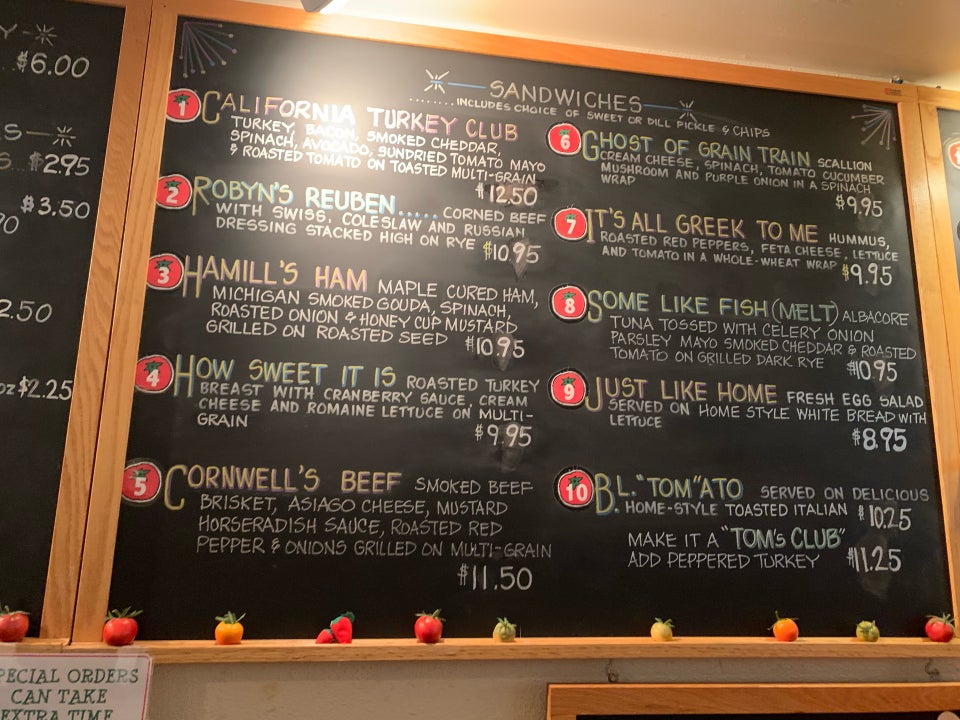 $6.00
$2.95
$3.50
2.50
oz $2.25
SANDWICHES
INCLUDES CHOICE OF SWEET OR DILL PICKLE & CHIPS
1 CALIFORNIA TURKEY CLUB
TURKEY, BACON, SMOKED CHEDDAR,
SPINACH, AVOCADO, SUNDRIED TOMATO MAYO
& ROASTED TOMATO ON TOASTED MULTI-GRAIN
$12.50
2 ROBYN'S REUBEN..... CORNED BEEF
WITH SWISS, COLESLAW AND RUSSIAN
DRESSING STACKED HIGH ON RYE $10.95
3 HAMILL'S HAM MAPLE CURED HAM,
MICHIGAN SMOKED GOUDA, SPINACH,
ROASTED ONION & HONEY CUP MUSTARD
GRILLED ON ROASTED SEED $10.95
4 HOW SWEET IT IS ROASTED TURKEY
BREAST WITH CRANBERRY SAUCE, CREAM
CHEESE AND ROMAINE LETTUCE ON MULTI-
GRAIN
$9.95
5 CORNWELL'S BEEF SMOKED BEEF
BRISKET, ASIAGO CHEESE, MUSTARD
HORSERADISH SAUCE, ROASTED RED
PEPPER & ONIONS GRILLED ON MULTI-GRAIN
$11.50
6 GHOST OF GRAIN TRAIN SCALLION
CREAM CHEESE, SPINACH, TOMATO CUCUMBER
MUSHROOM AND PURPLE ONION IN A SPINACH
WRAP
$9.95
7 IT'S ALL GREEK TO ME HUMMUS,
ROASTED RED PEPPERS, FETA CHEESE, LETTUCE
AND TOMATO IN A WHOLE-WHEAT WRAP $9.95
8 SOME LIKE FISH (MELT) ALBACORE
TUNA TOSSED WITH CELERY ONION
PARSLEY MAYO SMOKED CHEDDAR & ROASTED
TOMATO ON GRILLED DARK RYE $10.95
9 JUST LIKE HOME FRESH EGG SALAD
SERVED ON HOME STYLE WHITE BREAD WITH
LETTUCE
$8.95
10 B.L."TOM"ATO SERVED ON DELICIOUS
HOME-STYLE TOASTED ITALIAN $10.25
MAKE IT A "TOM'S CLUB"
ADD PEPPERED TURKEY $11.25
PECIAL ORDERS
CAN TAKE
EXTRA TIME